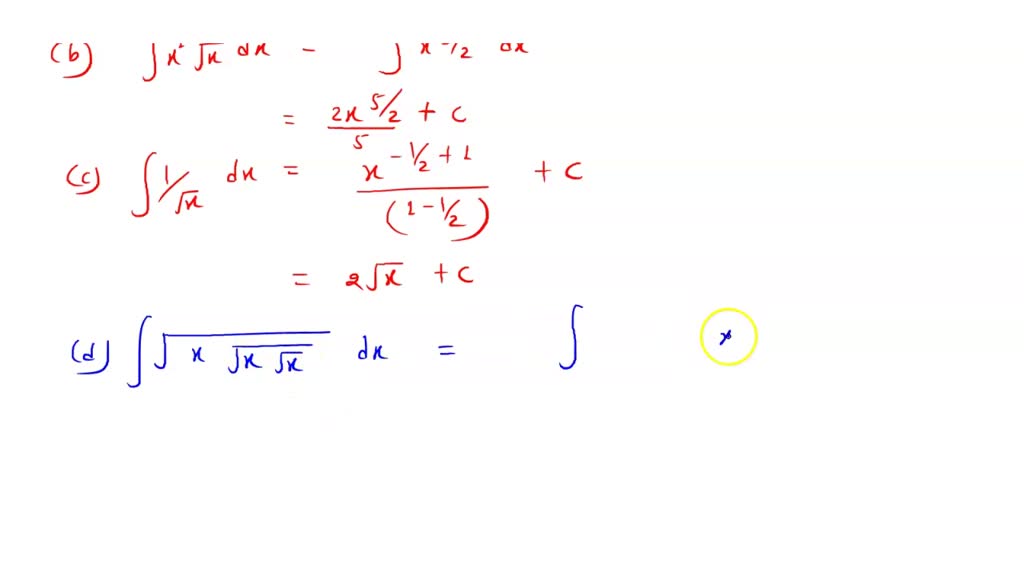 (b) ∫ x² √x dx - ∫ x dx
= 2x^5/2 / 5 + c
(c) ∫ 1/√x dx = x^(-1/2 + 1) / (1 - 1/2) + c
= 2√x + c
(d) ∫ √(x √(x √x)) dx = ∫ x